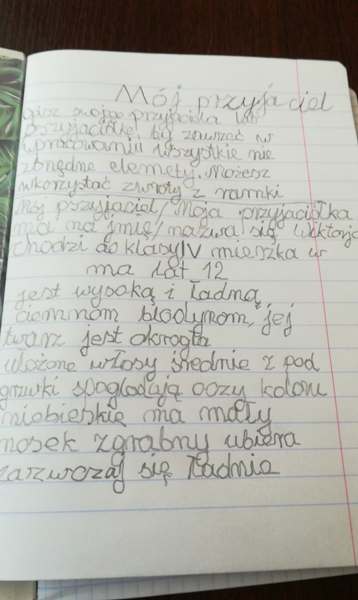 Mój przyjaciel
opisz swojego przyjaciela lub
przyjaciółkę, by zawrzeć w
wpracowaniu wszystkie nie
zbnędne elemety. Możesz
wkorzystać zwroty z ramki
Mój przyjaciel/Moja przyjaciółka
ma na imię/nazwa się Wiktoria
Chodzi do klasy IV mieszka w
ma lat 12
jest wysoką i ładną,
ciemnom blodynom, jej
twarz jest okrogła
ułożone włosy średnie z pod
grzwki spoglodają oczy koloru
niebieskie ma mały
nosek zgrabny ubiera
zazwczaj się ładnie